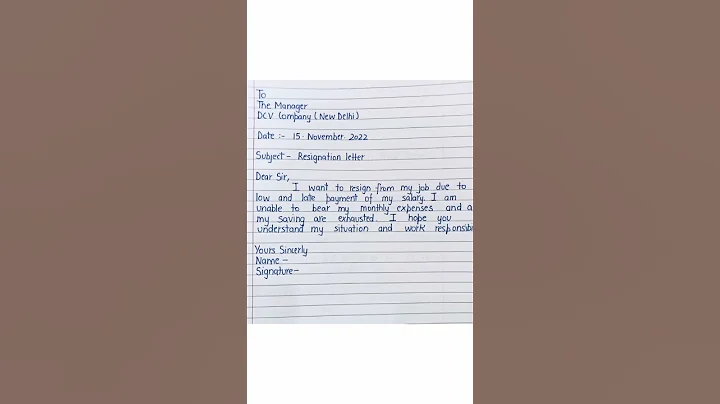 To
The Manager
DCV Company (New Delhi)
Date :- 15-November-2022
Subject - Resignation letter
Dear Sir,
I want to resign from my job due to
low and late payment of my salary. I am
unable to bear my monthly expenses and a
my saving are exhausted. I hope you
understand my situation and work responsib
Yours Sincerly
Name -
Signature -